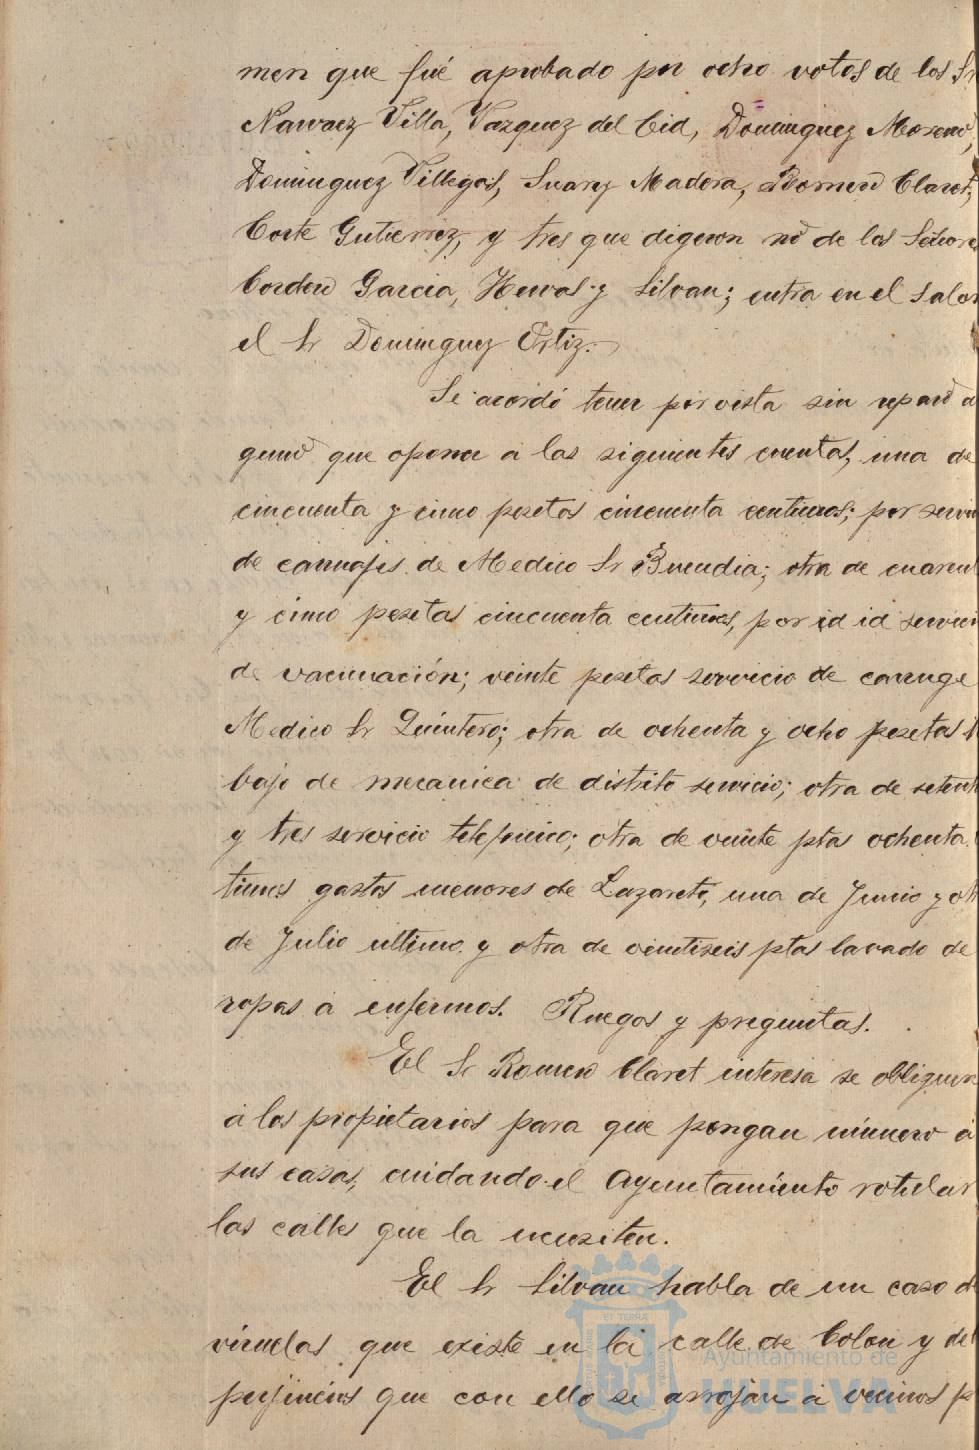 men que fué aprobado por ocho votos de los Sr
Narvaez Villa, Vazquez del Cid, Dominguez Moreno,
Dominguez Villegas, Suarez Madera, Romero Claret,
Corte Gutierrez, y tres que digeron no de los Señore
Cordero Garcia, Hervas y Silvan; entra en el salon
el Sr Dominguez Ortiz.
Se acordó tener por vista sin reparo a
guno que oponer a las siguientes cuentas, una de
cincuenta y cinco pesetas cincuenta centimos; por servi
de carruajes de Medico Sr Buendia; otra de cuarent
y cinco pesetas cincuenta centimos, por id id servici
de vacunación; veinte pesetas servicio de carruge
Medico Sr Quintero; otra de ochenta y ocho pesetas t
bajo de mecanica de distrito servicio; otra de setent
y tres servicio telefonico; otra de veinte ptas ochenta
timos gastos menores de Lazareto, una de Junio y ot
de Julio ultimo y otra de veintiseis ptas lavado de
ropas a enfermos. Ruegos y preguntas.
El Sr Romero Claret interesa se obliguen
á los propietarios para que pongan número á
sus casas, cuidando el Ayuntamiento rotular
las calles que la necesiten.
El Sr Silvan habla de un caso d
viruelas que existe en la calle de Colon y del
perjincios que con ello se arrojan a vecinos p
ET TERRA
Ayuntamiento de
HUELVA